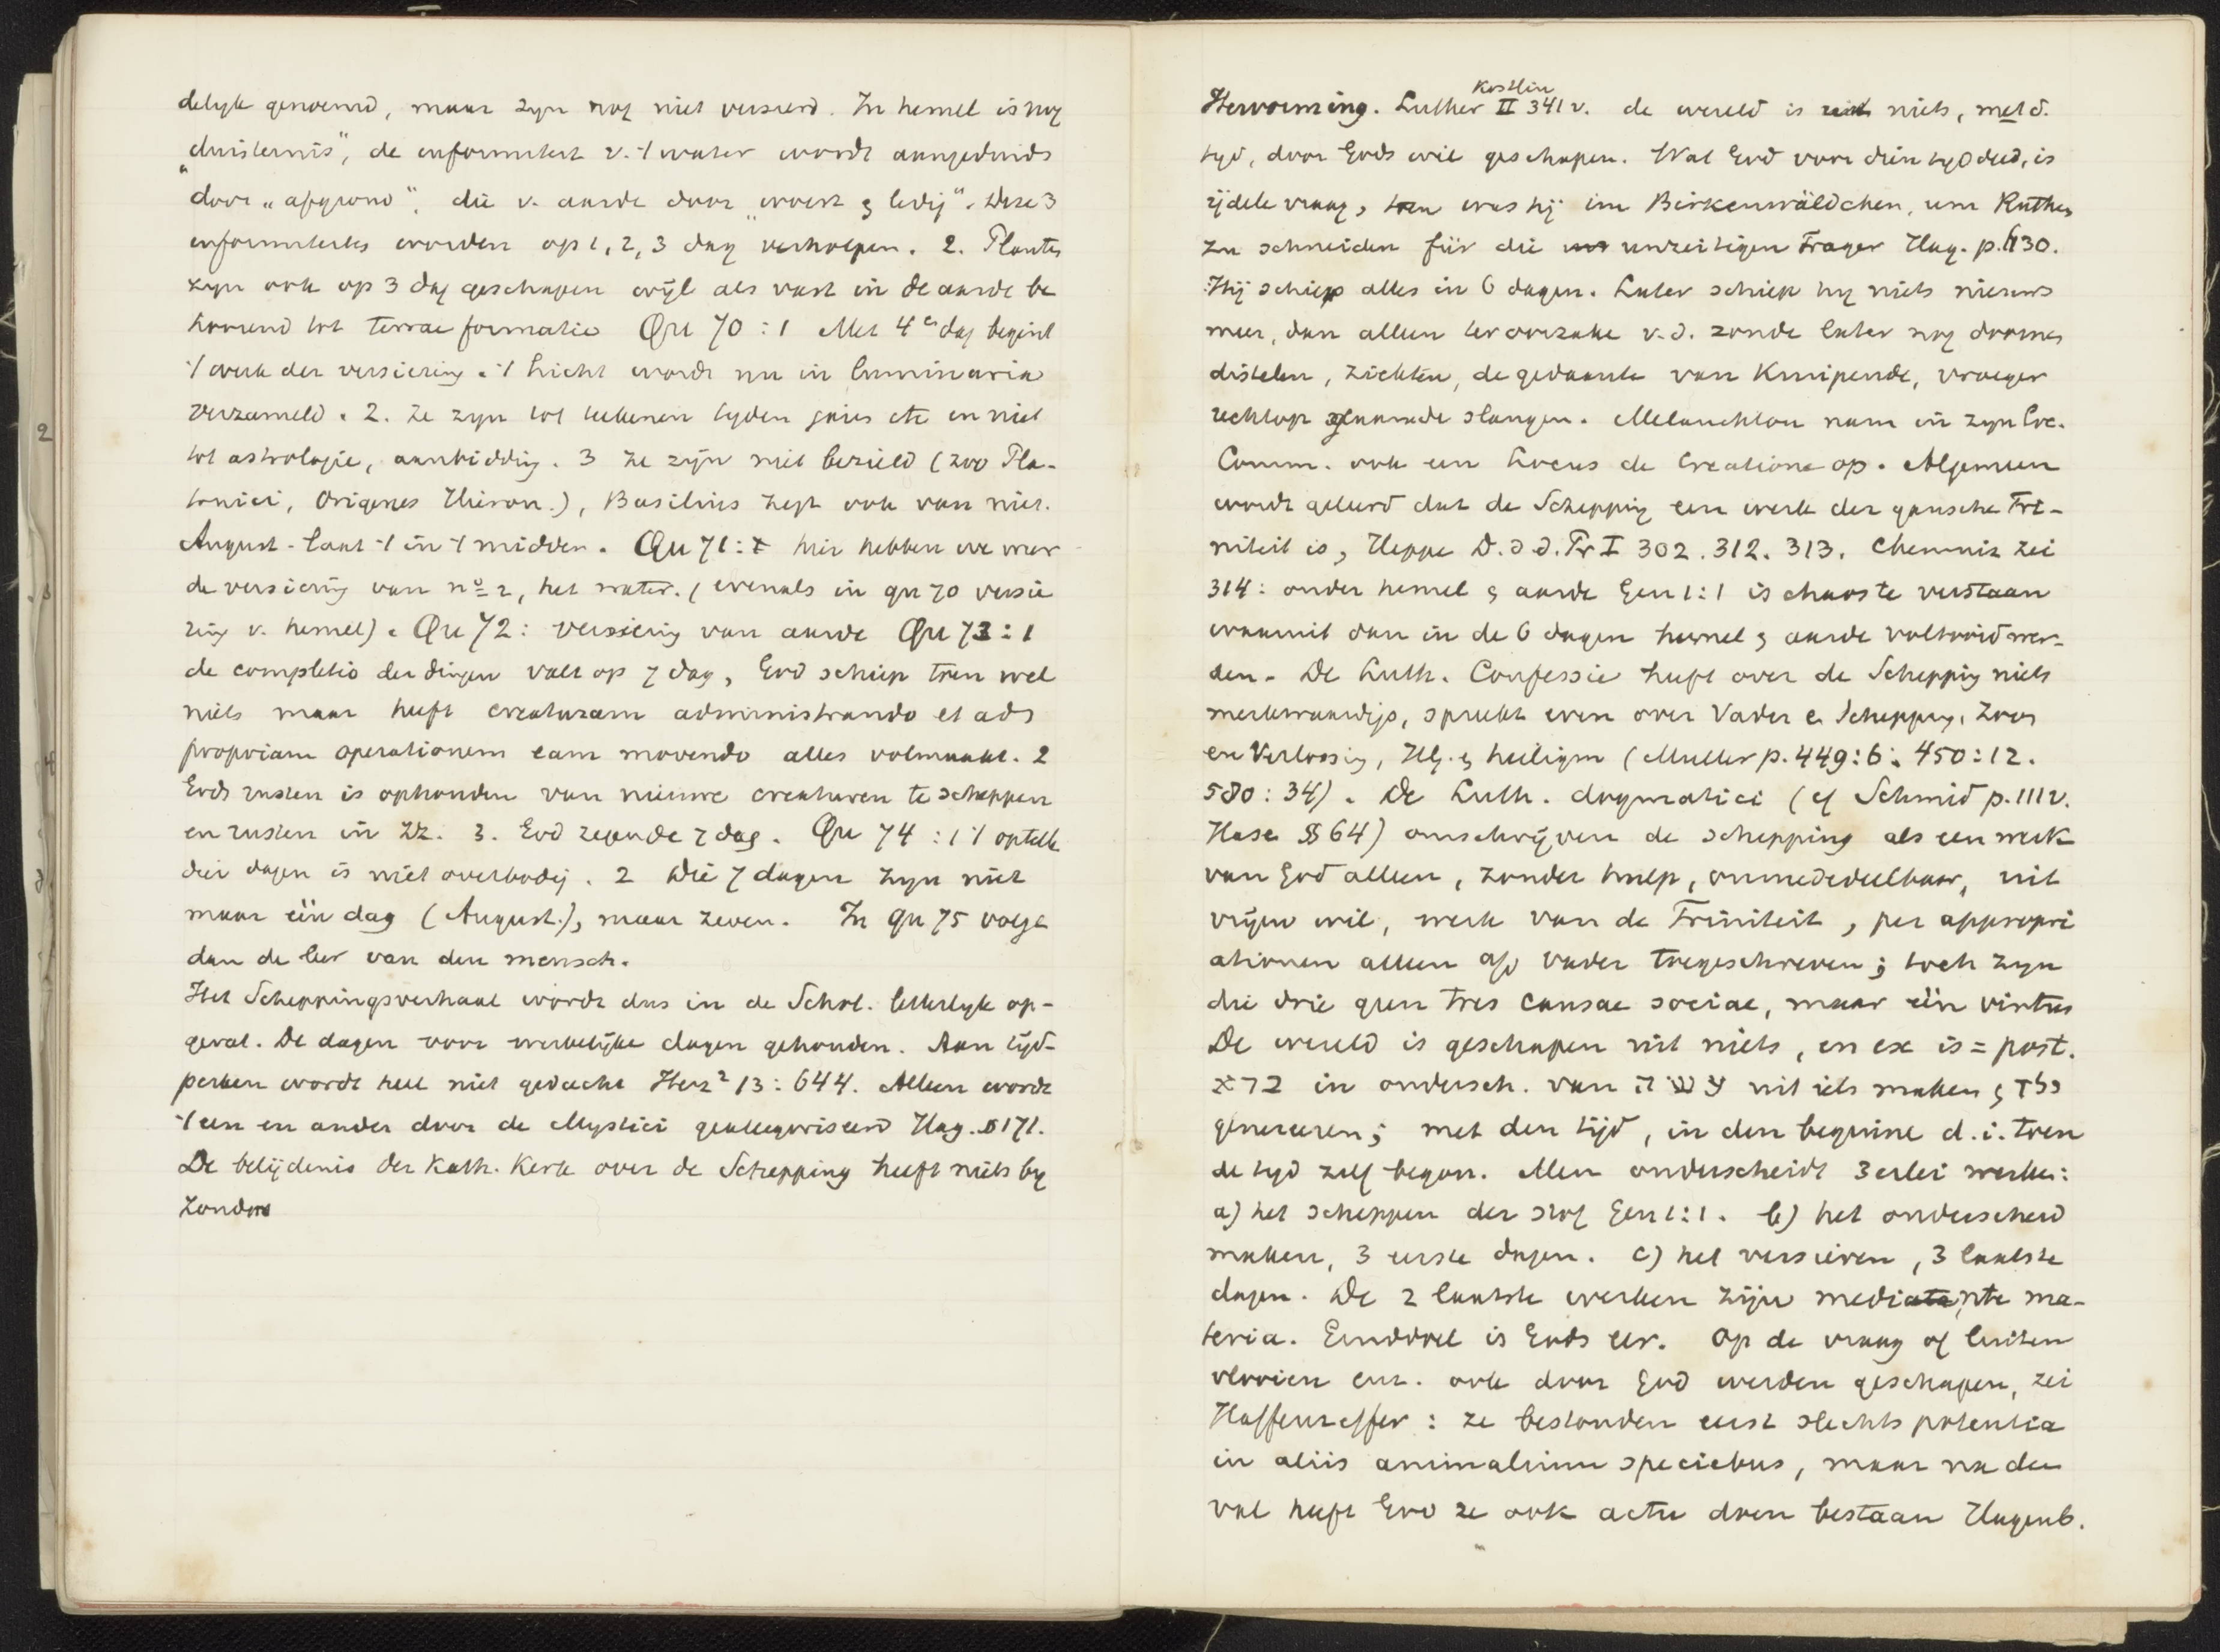 delijk genoemd, maar zijn nog niet versierd. In hemel is nog
„duisternis", de informiteit v. 't water wordt aangeduid
door „afgrond", die v. aarde door „woest & ledig". Deze 3
informiteiten worden op 1, 2, 3 dag verholpen. 2. Planten
zijn ook op 3 dag geschapen wijl als vast in de aarde be
hoorend tot terrae formatio Qu 70 : 1 Met 4en dag begint
't werk der versiering. 't Licht wordt nu in luminaria
verzameld. 2. Ze zijn tot teekenen tyden etc en niet
tot astrologie, aanbidding. 3 Ze zijn niet bezield (zoo Pla-
tonici, Origenes Hieron.), Basilius zegt ook van niet.
August. laat 't in 't midden. Qu 71: hier hebben we weer
de versiering van no 2, het water. (evenals in qu 70 versie
ring v. hemel). Qu 72: versiering van aarde Qu 73 : 1
de completio der dingen valt op 7 dag, God schiep toen wel
niets maar heeft creaturam administrando et ad
propriam operationem eam movendo alles volmaakt. 2
Gods rusten is ophouden van nieuwe creaturen te scheppen
en rusten in Zz. 3. God zegende 7 dag. Qu 74 : 1 't optellen
der dagen is niet overbodig. 2 Die 7 dagen zijn niet
maar één dag (August.), maar zeven. In qu 75 volgt
dan de leer van den mensch.
Het Scheppingsverhaal wordt dus in de Schol. letterlyk op-
gevat. De dagen voor werkelijke dagen gehouden. Aan tijd-
perken wordt heel niet gedacht Herz² 13 : 644. Alleen wordt
't een en ander door de Mystici geallegoriseerd Hag. § 171.
De belijdenis der Kath. Kerk over de Schepping heeft niets by
zonders
Köstlin
Hervorming. Luther II 341 v. de wereld is uit niets, met d.
tyd, door Gods wil geschapen. Wat God voor dien tyd deed, is
ijdele vraag, toen was hij im Birkenwäldchen, um Ruthen
zu schneiden für die unzeitigen Frager Hag. p. 430.
Hij schiep alles in 6 dagen. Later schiep hy niets nieuws
meer, dan alleen ter oorzake v.d. zonde later nog doornen
distelen, ziekten, de gedaante van kruipende, vroeger
rechtop gaande slangen. Melanchton nam in zijn Loc.
Comm. ook een Locus de Creatione op. Algemeen
wordt geleerd dat de Schepping een werk der gansche Tri-
niteit is, Heppe D. d d. Pr I 302. 312. 313. Chemniz zei
314: onder hemel & aarde Gen 1:1 is chaos te verstaan
waaruit dan in de 6 dagen hemel & aarde voltooid wer-
den. De Luth. Confessie heeft over de Schepping niets
merkwaardigs, spreekt even over Vader en Schepping, Zoon
en Verlossing, Hlg. & heiligm (Muller p. 449:6; 450:12.
580:34). De Luth. dogmatici (cf Schmid p. 111 v.
Hase § 64) omschrijven de schepping als een werk
van God alleen, zonder hulp, onmededeelbaar, uit
vrijen wil, werk van de Triniteit, per appropri
ationem alleen aan Vader toegeschreven; toch zijn
die drie geen tres causae sociae, maar één virtus
De wereld is geschapen uit niets, en ex is = post.
ברא in ondersch. van עשה uit iets maken & ילד
genereeren; met den tijd, in den beginne d.i. toen
de tyd zelf begon. Men onderscheidt 3erlei werken:
a) het scheppen der stof Gen 1:1. b) het onderscheid
maken, 3 eerste dagen. c) het versieren, 3 laatste
dagen. De 2 laatste werken zijn mediante ma-
teria. Einddoel is Gods eer. Op de vraag of luizen
vlooien enz. ook door God werden geschapen, zei
Haffenreffer: ze bestonden eerst slechts potentia
in aliis animalium speciebus, maar na den
val heeft God ze ook actu doen bestaan Hagenb.